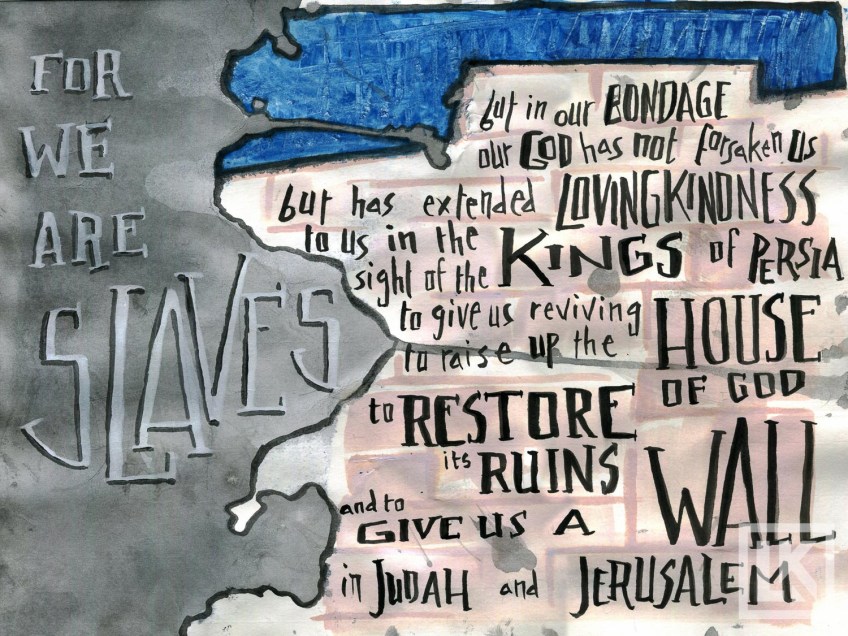 FOR
WE
ARE
SLAVES
but in our BONDAGE
our GOD has not forsaken us
but has extended LOVINGKINDNESS
to us in the
sight of the KINGS of PERSIA
to give us reviving
to raise up the HOUSE
OF GOD
to RESTORE
its RUINS
and to
GIVE US A WALL
in JUDAH and JERUSALEM
LK